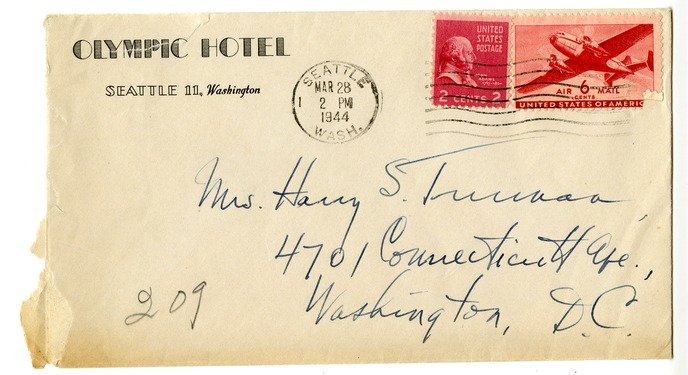 OLYMPIC HOTEL
SEATTLE 11, Washington
SEATTLE
MAR 28
1 2 PM
1944
WASH.
UNITED
STATES
POSTAGE
JOHN
ADAMS
2 CENTS 2
AIR 6 MAIL
CENTS
UNITED STATES OF AMERIC
Mrs. Harry S. Truman,
4701 Connecticutt Ave.,
Washington, D.C.
209